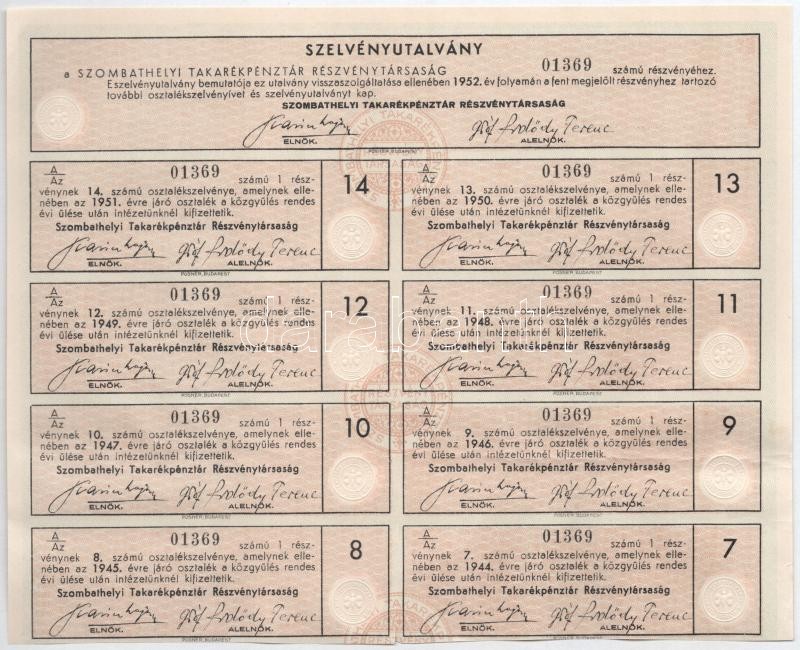 SZELVÉNYUTALVÁNY
a SZOMBATHELYI TAKARÉKPÉNZTÁR RÉSZVÉNYTÁRSASÁG 01369 számú részvényéhez.
E szelvényutalvány bemutatója ez utalvány visszaszolgáltatása ellenében 1952. év folyamán a fent megjelölt részvényhez tartozó
további osztalékszelvényívet és szelvényutalványt kap.
SZOMBATHELYI TAKARÉKPÉNZTÁR RÉSZVÉNYTÁRSASÁG
Gróf Erdődy Ferenc
ELNÖK. ALELNÖK.
POSNER, BUDAPEST
A/Az 01369 számú 1 rész-
vénynek 14. számú osztalékszelvénye, amelynek elle-
nében az 1951. évre járó osztalék a közgyűlés rendes
évi ülése után intézetünknél kifizettetik.
Szombathelyi Takarékpénztár Részvénytársaság
Gróf Erdődy Ferenc
ELNÖK. ALELNÖK.
14
POSNER, BUDAPEST
A/Az 01369 számú 1 rész-
vénynek 13. számú osztalékszelvénye, amelynek elle-
nében az 1950. évre járó osztalék a közgyűlés rendes
évi ülése után intézetünknél kifizettetik.
Szombathelyi Takarékpénztár Részvénytársaság
Gróf Erdődy Ferenc
ELNÖK. ALELNÖK.
13
POSNER, BUDAPEST
A/Az 01369 számú 1 rész-
vénynek 12. számú osztalékszelvénye, amelynek elle-
nében az 1949. évre járó osztalék a közgyűlés rendes
évi ülése után intézetünknél kifizettetik.
Szombathelyi Takarékpénztár Részvénytársaság
Gróf Erdődy Ferenc
ELNÖK. ALELNÖK.
12
POSNER, BUDAPEST
A/Az 01369 számú 1 rész-
vénynek 11. számú osztalékszelvénye, amelynek elle-
nében az 1948. évre járó osztalék a közgyűlés rendes
évi ülése után intézetünknél kifizettetik.
Szombathelyi Takarékpénztár Részvénytársaság
Gróf Erdődy Ferenc
ELNÖK. ALELNÖK.
11
POSNER, BUDAPEST
A/Az 01369 számú 1 rész-
vénynek 10. számú osztalékszelvénye, amelynek elle-
nében az 1947. évre járó osztalék a közgyűlés rendes
évi ülése után intézetünknél kifizettetik.
Szombathelyi Takarékpénztár Részvénytársaság
Gróf Erdődy Ferenc
ELNÖK. ALELNÖK.
10
POSNER, BUDAPEST
A/Az 01369 számú 1 rész-
vénynek 9. számú osztalékszelvénye, amelynek elle-
nében az 1946. évre járó osztalék a közgyűlés rendes
évi ülése után intézetünknél kifizettetik.
Szombathelyi Takarékpénztár Részvénytársaság
Gróf Erdődy Ferenc
ELNÖK. ALELNÖK.
9
POSNER, BUDAPEST
A/Az 01369 számú 1 rész-
vénynek 8. számú osztalékszelvénye, amelynek elle-
nében az 1945. évre járó osztalék a közgyűlés rendes
évi ülése után intézetünknél kifizettetik.
Szombathelyi Takarékpénztár Részvénytársaság
Gróf Erdődy Ferenc
ELNÖK. ALELNÖK.
8
POSNER, BUDAPEST
A/Az 01369 számú 1 rész-
vénynek 7. számú osztalékszelvénye, amelynek elle-
nében az 1944. évre járó osztalék a közgyűlés rendes
évi ülése után intézetünknél kifizettetik.
Szombathelyi Takarékpénztár Részvénytársaság
Gróf Erdődy Ferenc
ELNÖK. ALELNÖK.
7
POSNER, BUDAPEST